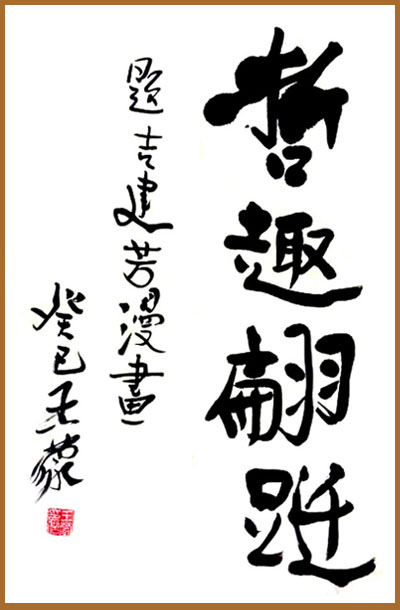 哲趣翩跹
題吉建芳漫畫
癸巳王蒙